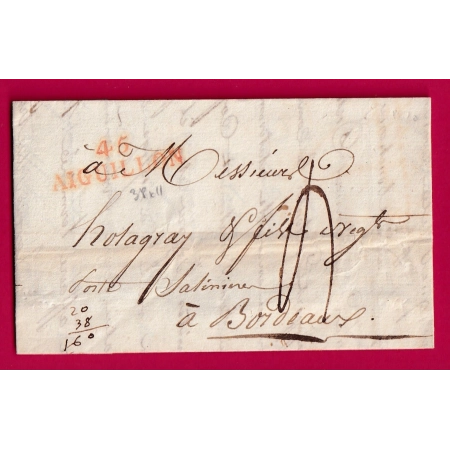 46
AIGUILLON
à Messieurs
38x11
holagray & fils Négts
Porte Salinière
à Bordeaux.
20
38
160
4